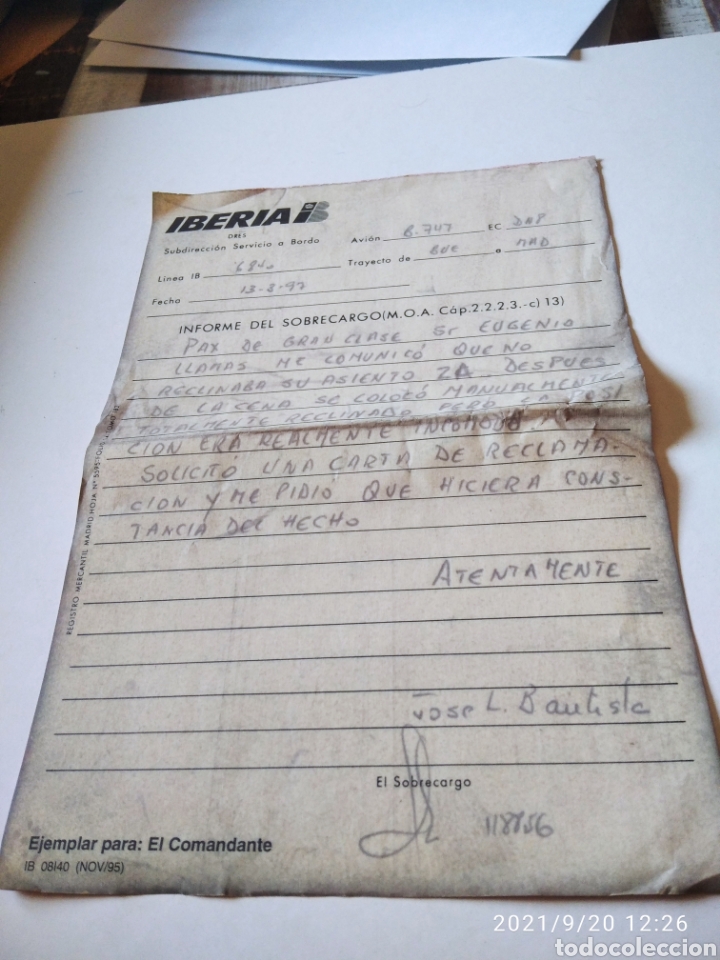 IBERIA
DRES
Subdirección Servicio a Bordo
Avión B.747 EC DNP
Línea IB 6840 Trayecto de BUE a MAD
Fecha 13-3-97
INFORME DEL SOBRECARGO(M.O.A. Cáp.2.2.2.3.-c) 13)
PAX DE GRAN CLASE Sr EUGENIO
LLAMAS ME COMUNICÓ QUE NO
RECLINABA SU ASIENTO 2A DESPUES
DE LA CENA SE COLOCÓ MANUALMENTE
TOTALMENTE RECLINADO PERO LA POSI
CION ERA REALMENTE INCOMODA
SOLICITÓ UNA CARTA DE RECLAMA-
CION Y ME PIDIÓ QUE HICIERA CONS-
TANCIA DEL HECHO
ATENTAMENTE
Jose L. Bautista
El Sobrecargo
118856
Ejemplar para: El Comandante
IB 08I40 (NOV/95)
REGISTRO MERCANTIL MADRID HOJA Nº
2021/9/20 12:26
todocoleccion